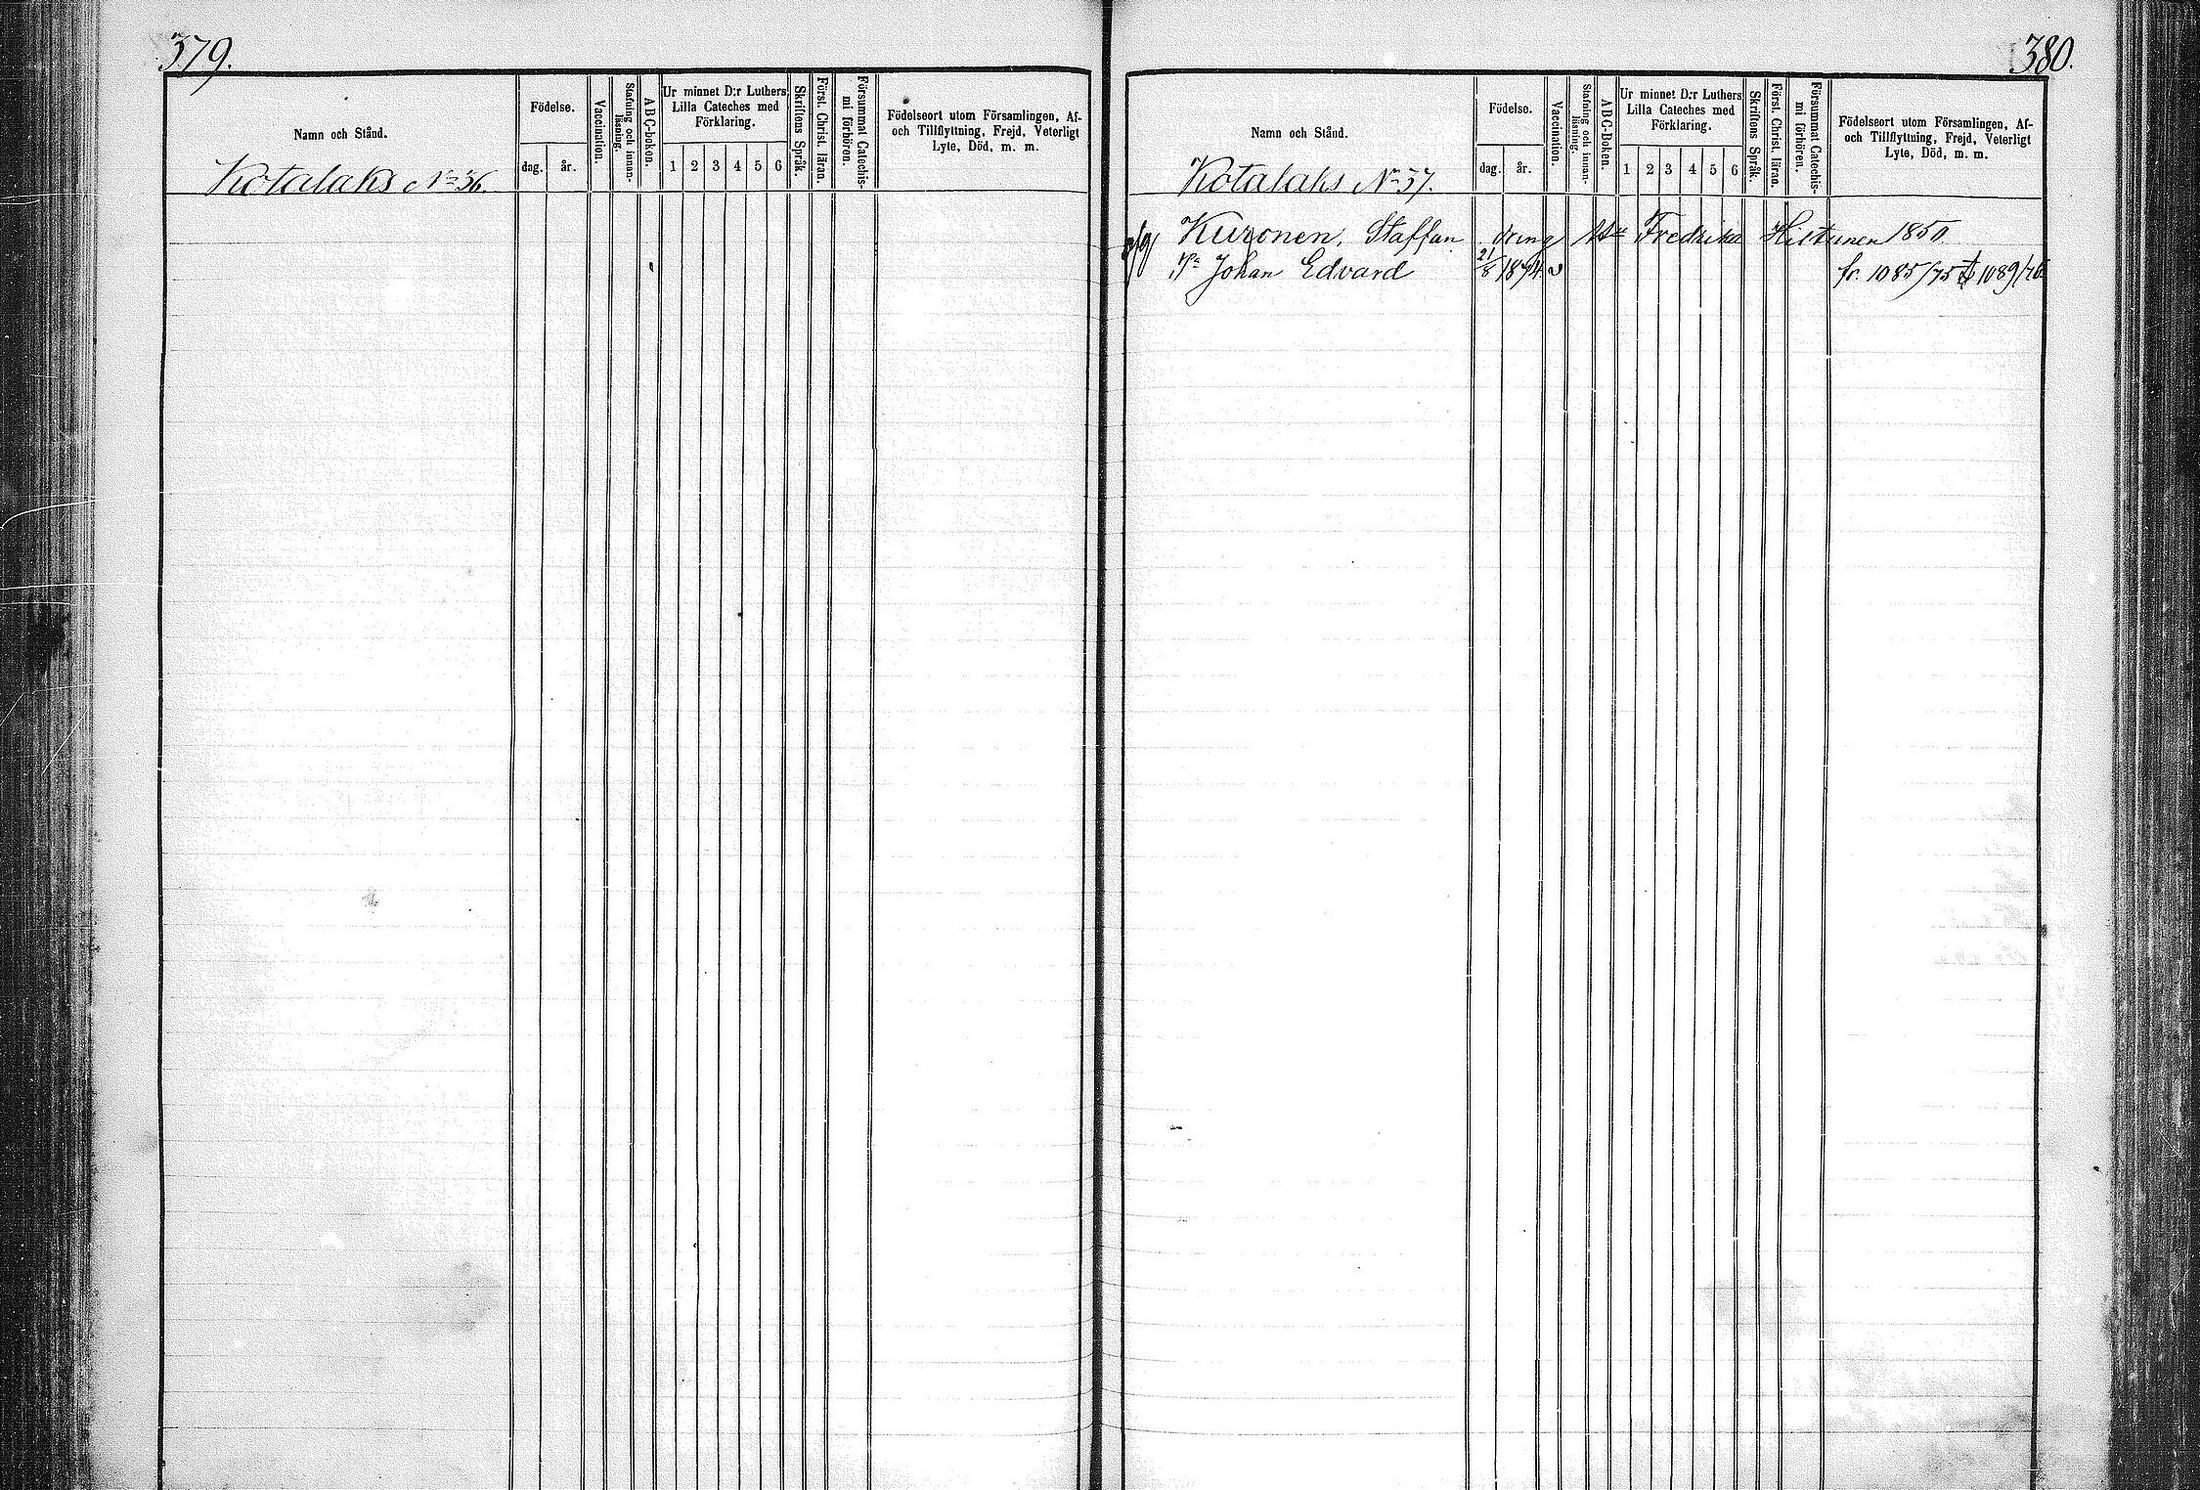 379.
Namn och Stånd.
Födelse.
dag.
år.
Vaccination.
Stafning och innan-
läsning.
ABC-boken.
Ur minnet D:r Luthers
Lilla Cateches med
Förklaring.
1 2 3 4 5 6
Skriftens Språk.
Först. Christ. läran.
Försummat Catechis-
mi förhören.
Födelseort utom Församlingen, Af-
och Tillflyttning, Frejd, Veterligt
Lyte, Död, m. m.
Kotalaks No 36.
380.
Namn och Stånd.
Födelse.
dag.
år.
Vaccination.
Stafning och innan-
läsning.
ABC-Boken.
Ur minnet D:r Luthers
Lilla Cateches med
Förklaring.
1 2 3 4 5 6
Skriftens Språk.
Först. Christ. läran.
Försummat Catechis-
mi förhören.
Födelseort utom Församlingen, Af-
och Tillflyttning, Frejd, Veterligt
Lyte, Död, m. m.
Kotalaks No 37.
Kuronen, Staffan dreng Fredrika Hiltunen 1850
Johan Edvard 21/8 1874 v fr. 1085/75 1089/76